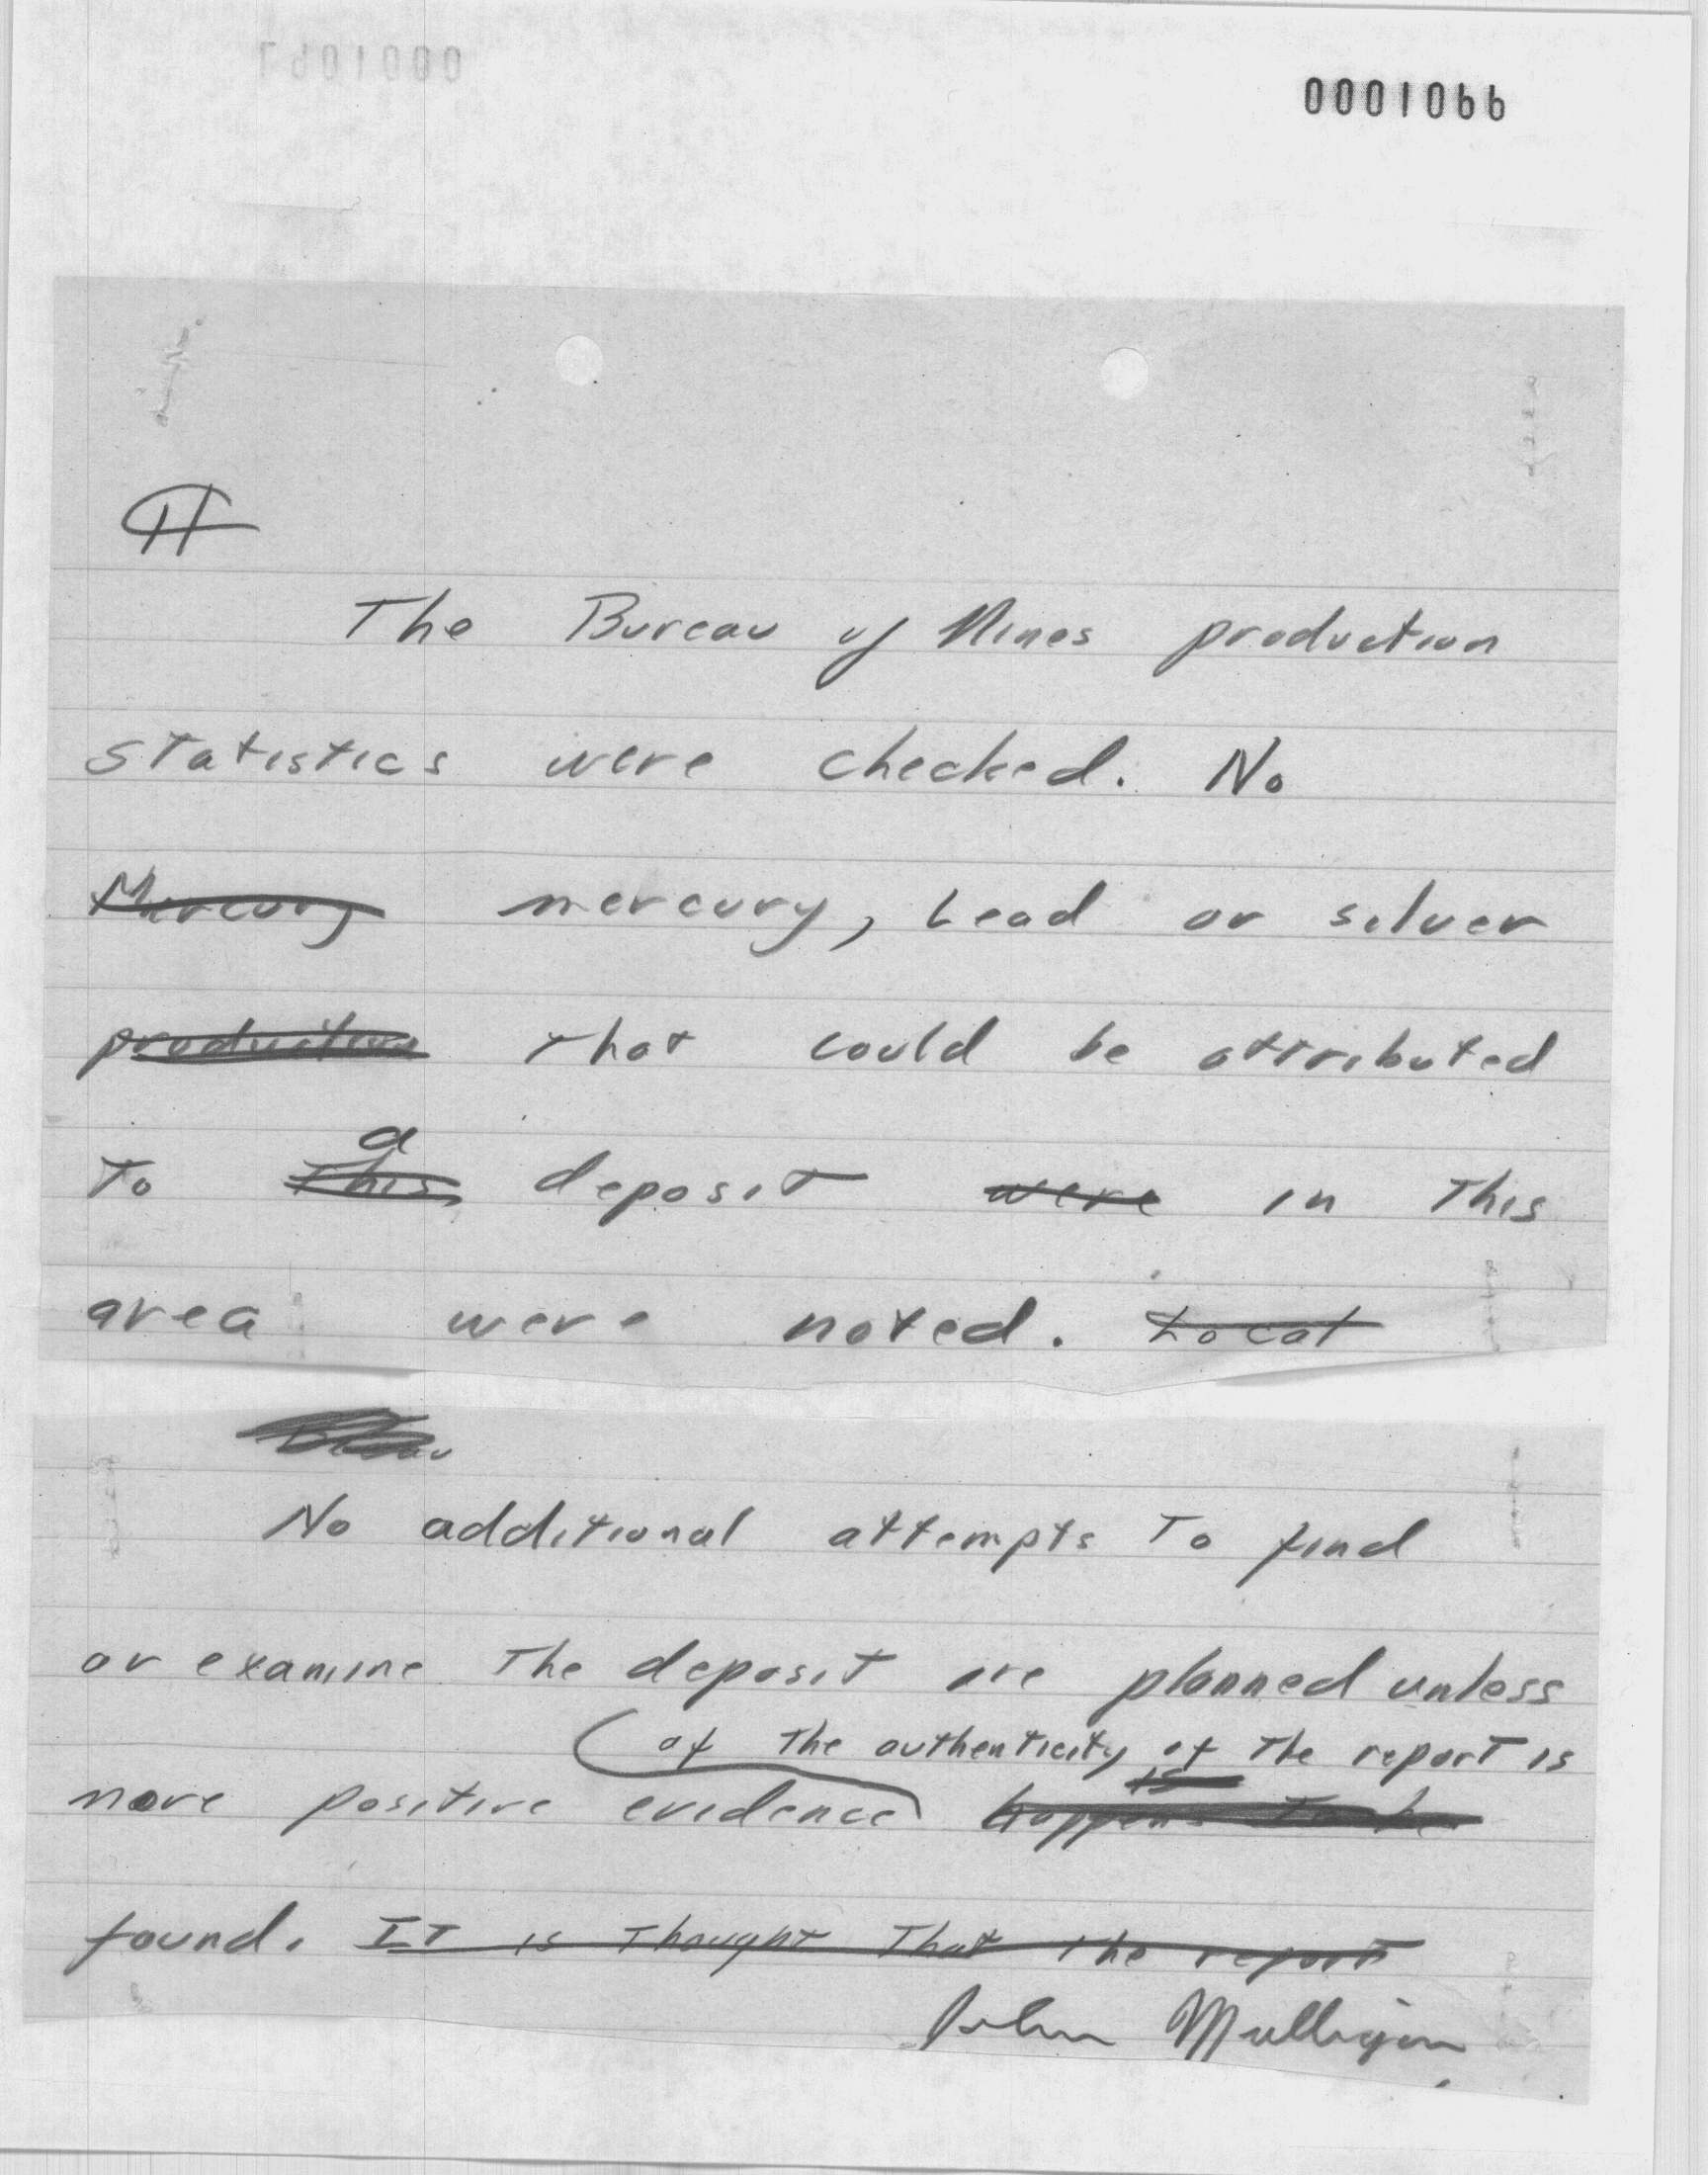 0001066
The Bureau of Mines production
statistics were checked. No
Mercury mercury, Lead or silver
production that could be attributed
a
To this deposit were in This
area were noted. Local
No additional attempts To find
or examine The deposit are planned unless
of The authenticity of The report is
is
more positive evidence happens To be
found. IT is Thought That the report
John Mulligan